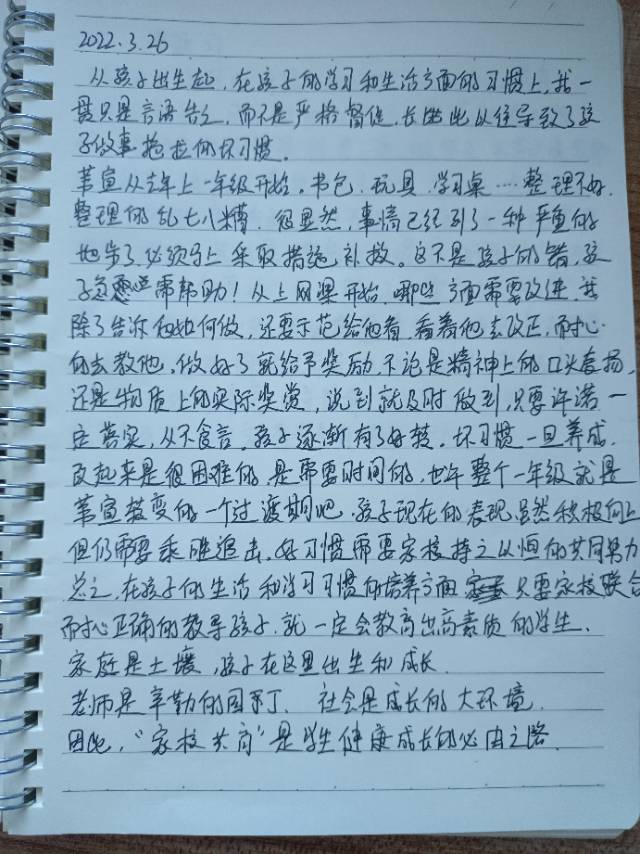 2022.3.26
从孩子出生起,在孩子的学习和生活方面的习惯上,我一
贯只是言语告之,而不是严格督促,长此以往导致了孩
子做事拖拉的坏习惯。
苇宣从去年上一年级开始。书包.玩具.学习桌……整理不好.
整理的乱七八糟.很显然,事情已经到了一种严重的
地步了必须马上采取措施,补救。这不是孩子的错,孩
子急需帮助!从上网课开始.哪些方面需要改进.我
除了告诉他如何做,还要示范给他看,看着他去改正,而耐心
的去教他。做好了就给予奖励,不论是精神上的口头表扬,
还是物质上的实际奖赏,说到就及时做到,只要许诺一
定落实,从不食言。孩子逐渐有了好转.坏习惯一旦养成.
改起来是很困难的,是需要时间的,也许整个一年级就是
苇宣转变的一个过渡期吧.孩子现在的表现虽然积极向上
但仍需要乘胜追击,好习惯需要家校持之以恒的共同努力
总之,在孩子的生活和学习习惯的培养方面 只要家校联合
耐心正确的教导孩子.就一定会教育出高素质的学生.
家庭是土壤,孩子在这里出生和成长.
老师是辛勤的园丁. 社会是成长的大环境.
因此,“家校共育”是学生健康成长的必由之路.